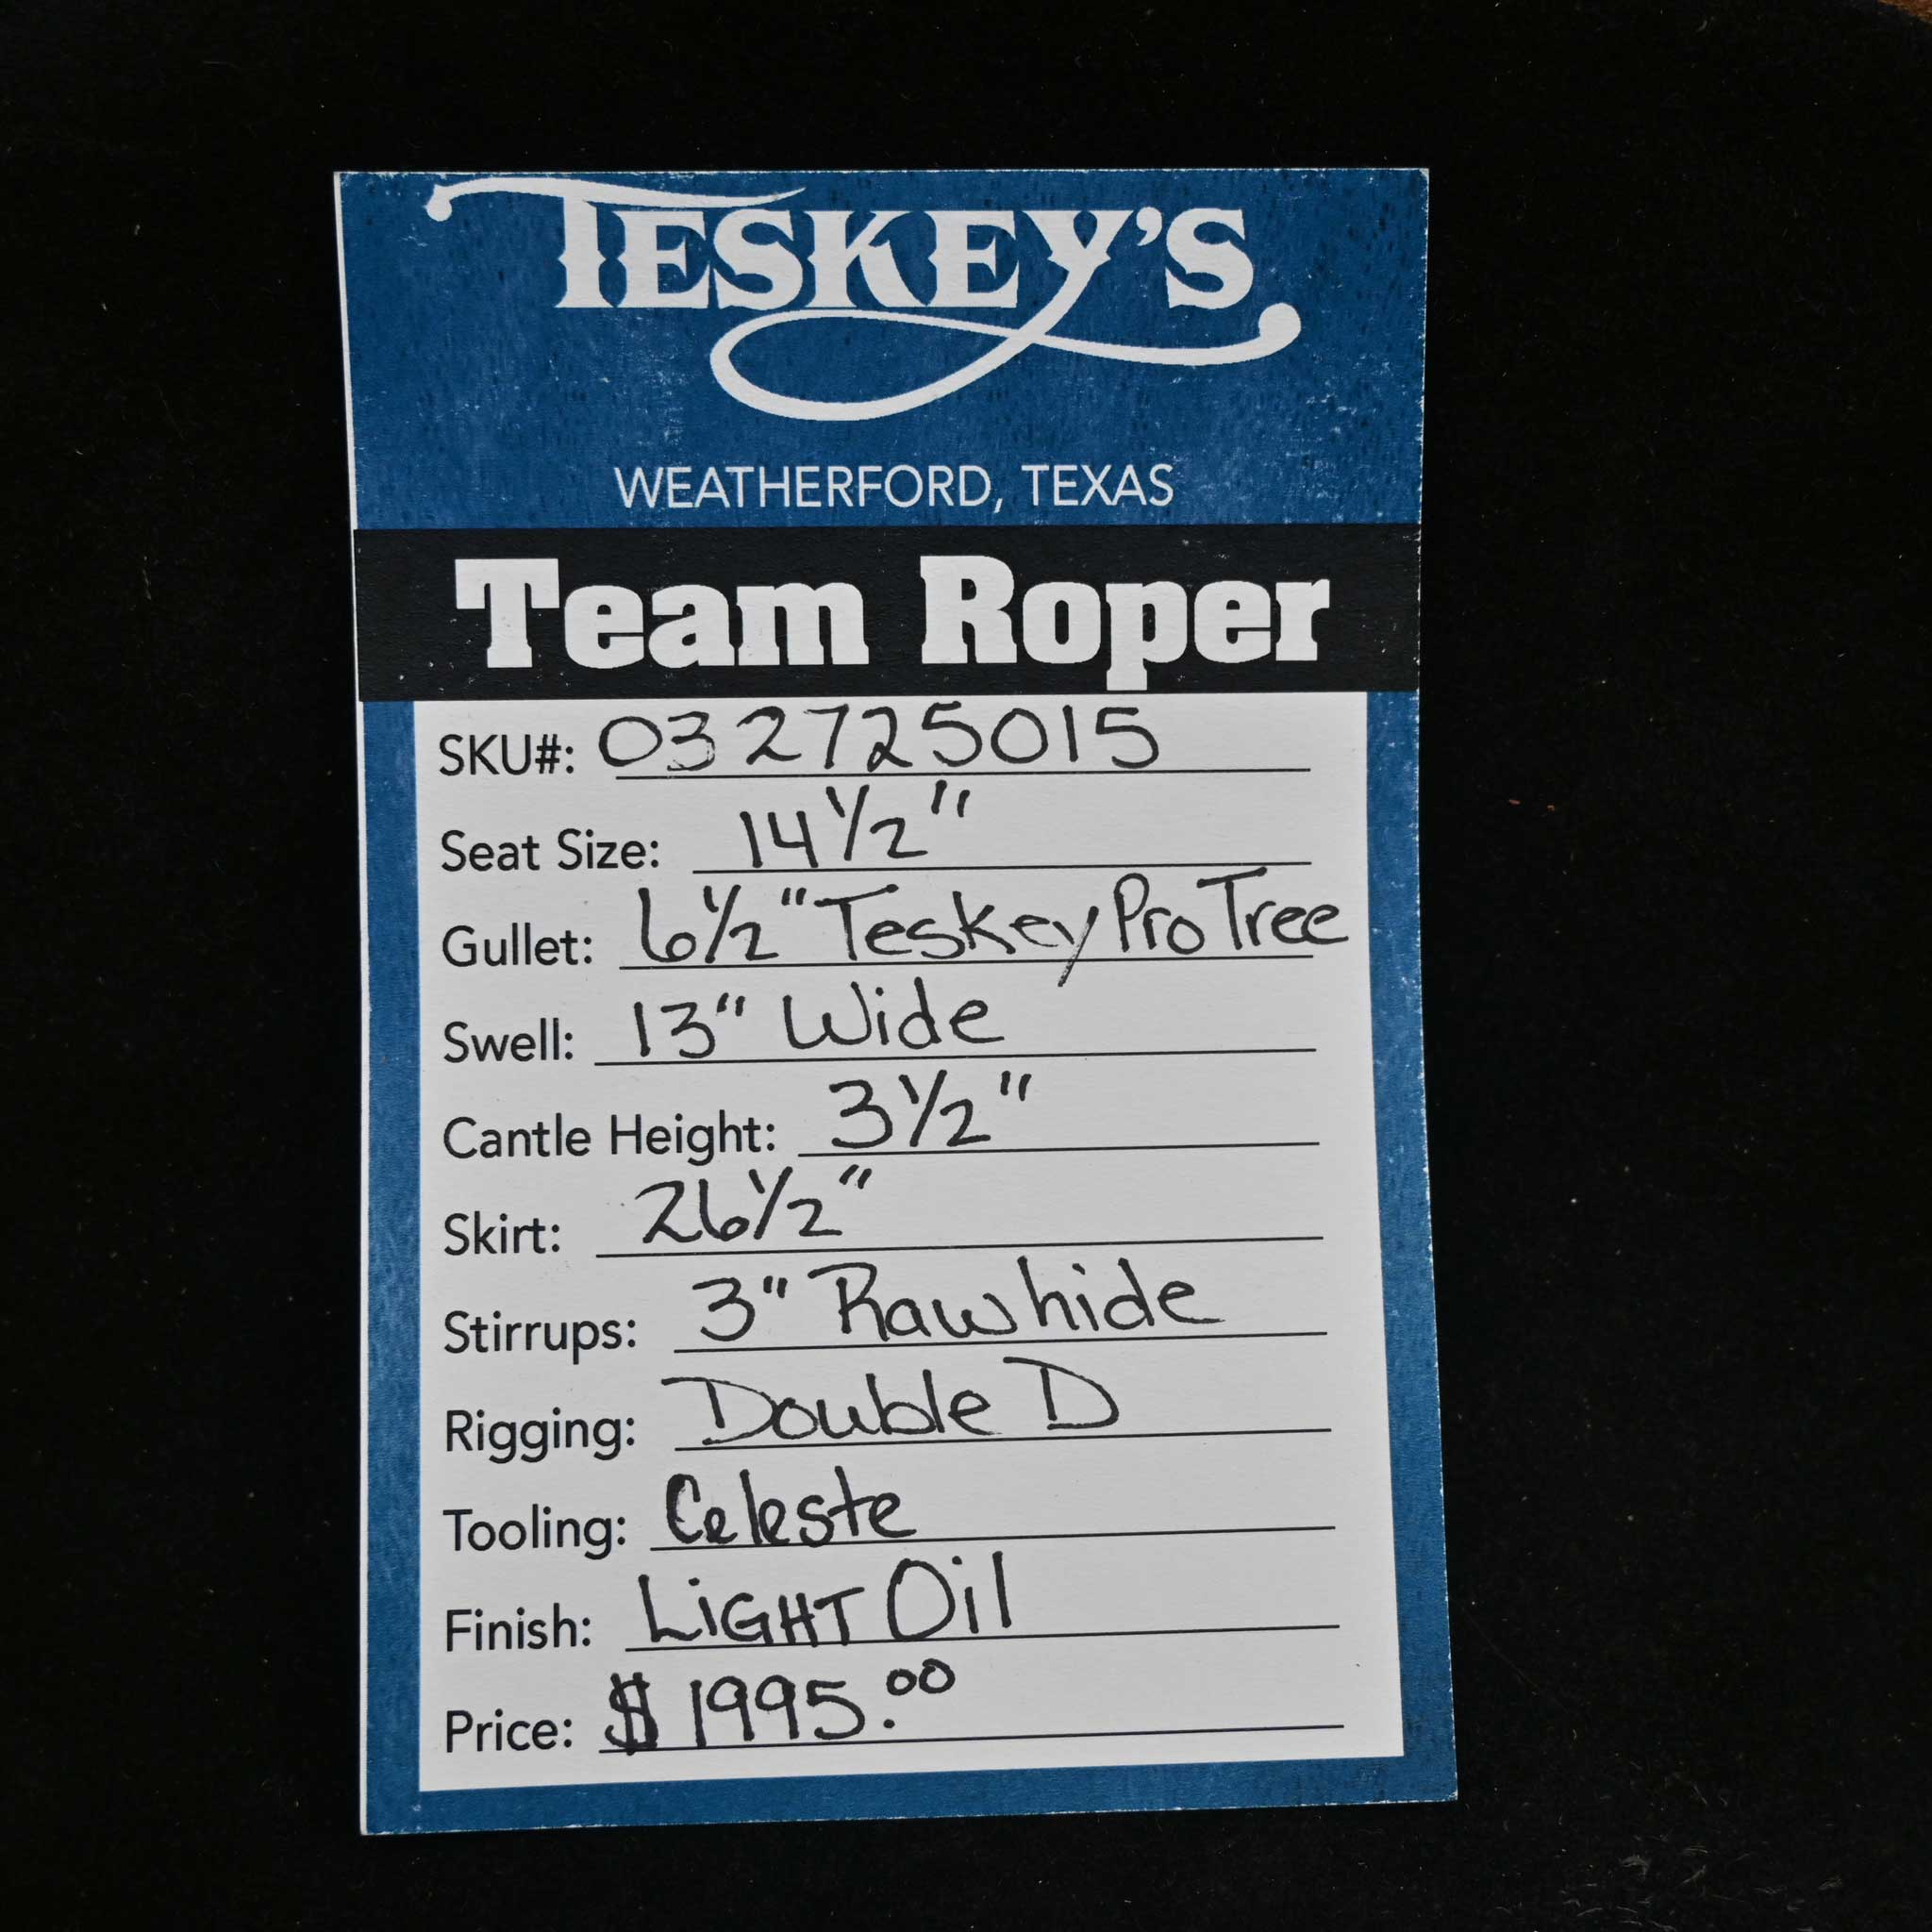 TESKEY'S
WEATHERFORD, TEXAS
Team Roper
SKU#: 032725015
Seat Size: 14 1/2"
Gullet: 6 1/2" Teskey Pro Tree
Swell: 13" Wide
Cantle Height: 3 1/2"
Skirt: 26 1/2"
Stirrups: 3" Rawhide
Rigging: Double D
Tooling: Celeste
Finish: LiGHT Oil
Price: $ 1995.00